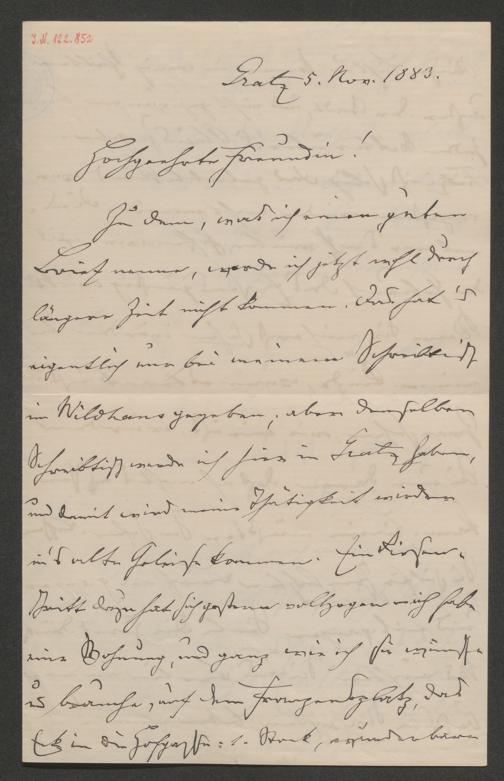 I.N. 122.852
Gratz 5. Nov. 1883.
Hochgeehrte Freundin!
Zu dem, was ich einen guten
Brief nenne, werde ich jetzt wohl durch
längere Zeit nicht kommen. Das hat's
eigentlich nur bei meinem Schreibtisch
in Wildhaus gegeben; aber denselben
Schreibtisch werde ich hier in Gratz haben,
und damit wird meine Thätigkeit wieder
in's alte Geleise kommen. Ein Riesen-
schritt dazu hat sich gestern vollzogen: ich habe
eine Wohnung, und ganz wie ich sie wünsche
u. brauche, auf dem Franzensplatz, das
Eck in die Hofgasse: 1. Stock, wunderbare